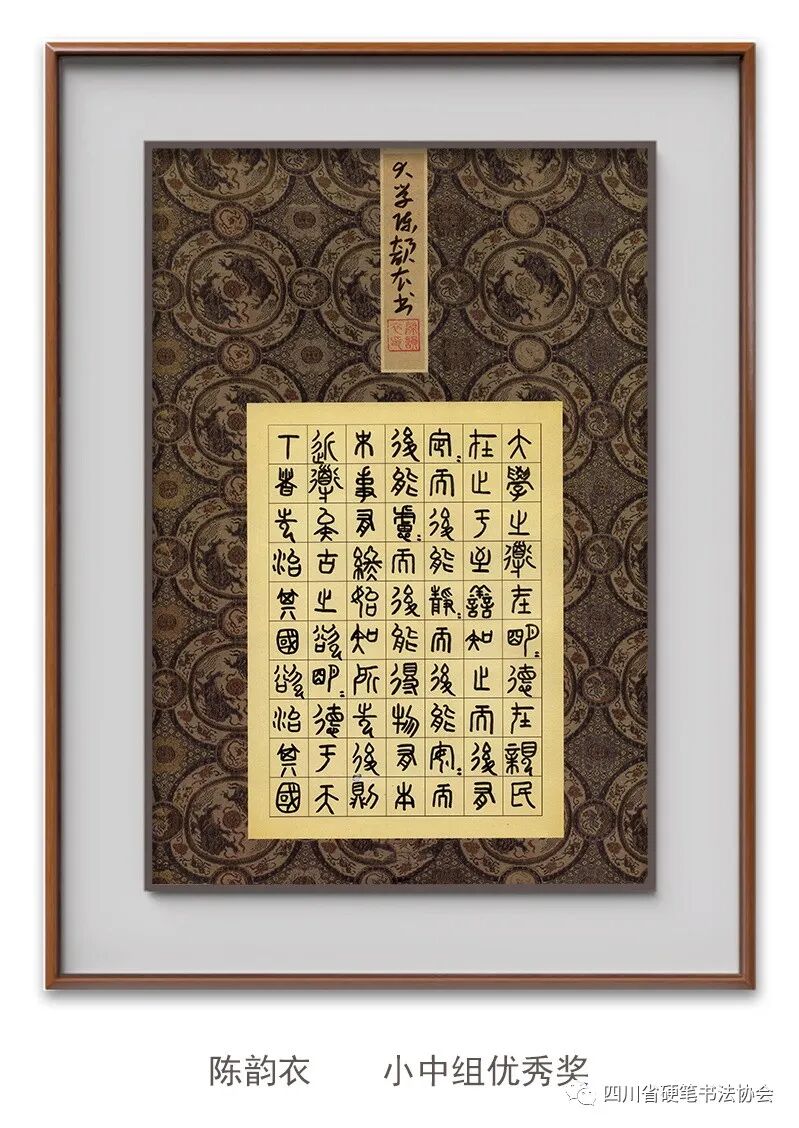 大学陈韵衣书
大學之道在明〻德在親民
在止于至善知止而後有
定〻而後能靜〻而後能安〻而
後能慮〻而後能得物有本
末事有終始知所先後則
近道矣古之欲明〻德于天
下者先治其國欲治其國
陈韵衣 小中组优秀奖
四川省硬笔书法协会